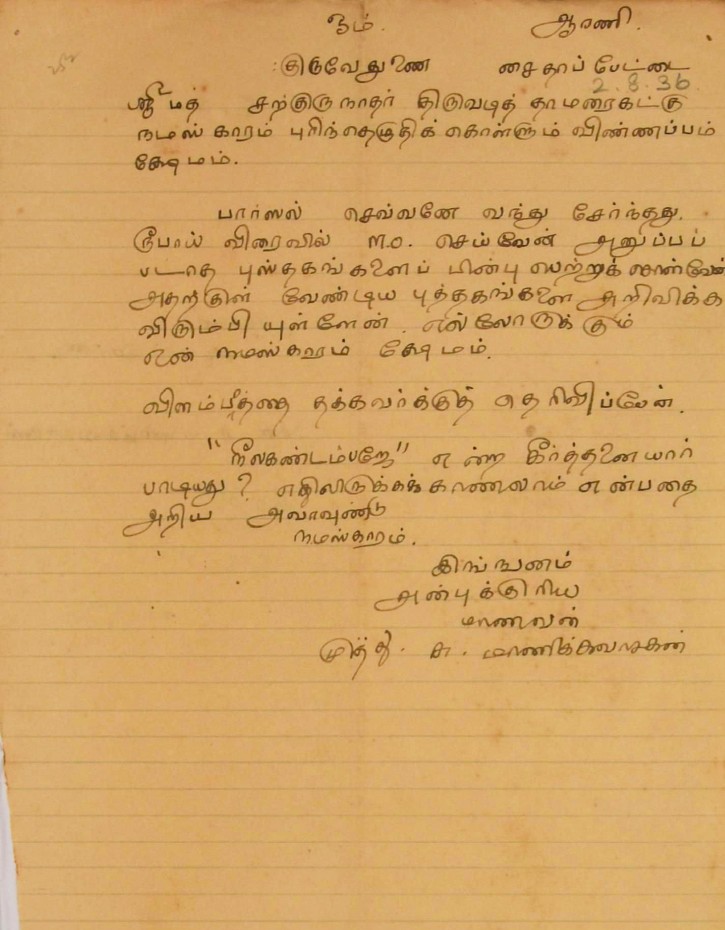 ஓம். ஆரணி.
குருவே துணை சைதாப் பேட்டை
2.8.36
ஸ்ரீமத் சற்குரு நாதர் திருவடித் தாமரைகட்கு
நமஸ்காரம் புரிந்தெழுதிக் கொள்ளும் விண்ணப்பம்
க்ஷேமம்.
பார்ஸல் செவ்வனே வந்து சேர்ந்தது.
ரூபாய் விரைவில் M.O. செய்வேன் அனுப்பப்
படாத புஸ்தகங்களைப் பின்பு பெற்றுக் கொள்வேன்
அதற்குள் வேண்டிய புத்தகங்களை அறிவிக்க
விரும்பி யுள்ளேன். எல்லோருக்கும்
என் நமஸ்காரம் க்ஷேமம்.
விளம்பரத்தை தக்கவர்க்குத் தெரிவிப்பேன்.
"நீலகண்டம்பஜே" என்ற கீர்த்தனை யார்
பாடியது? எதிலிருக்கக் காணலாம் என்பதை
அறிய அவாவுண்டு
நமஸ்காரம்.
இங்ஙனம்
அன்புக்குரிய
மாணவன்
முத்து. சு. மாணிக்கவாசகன்